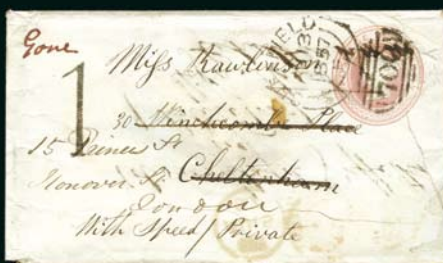 Gone
Miss Rawlinson
1
30 Winchcomb Place
15 Princes St
Hanover St Cheltenham
London
With Speed / Private